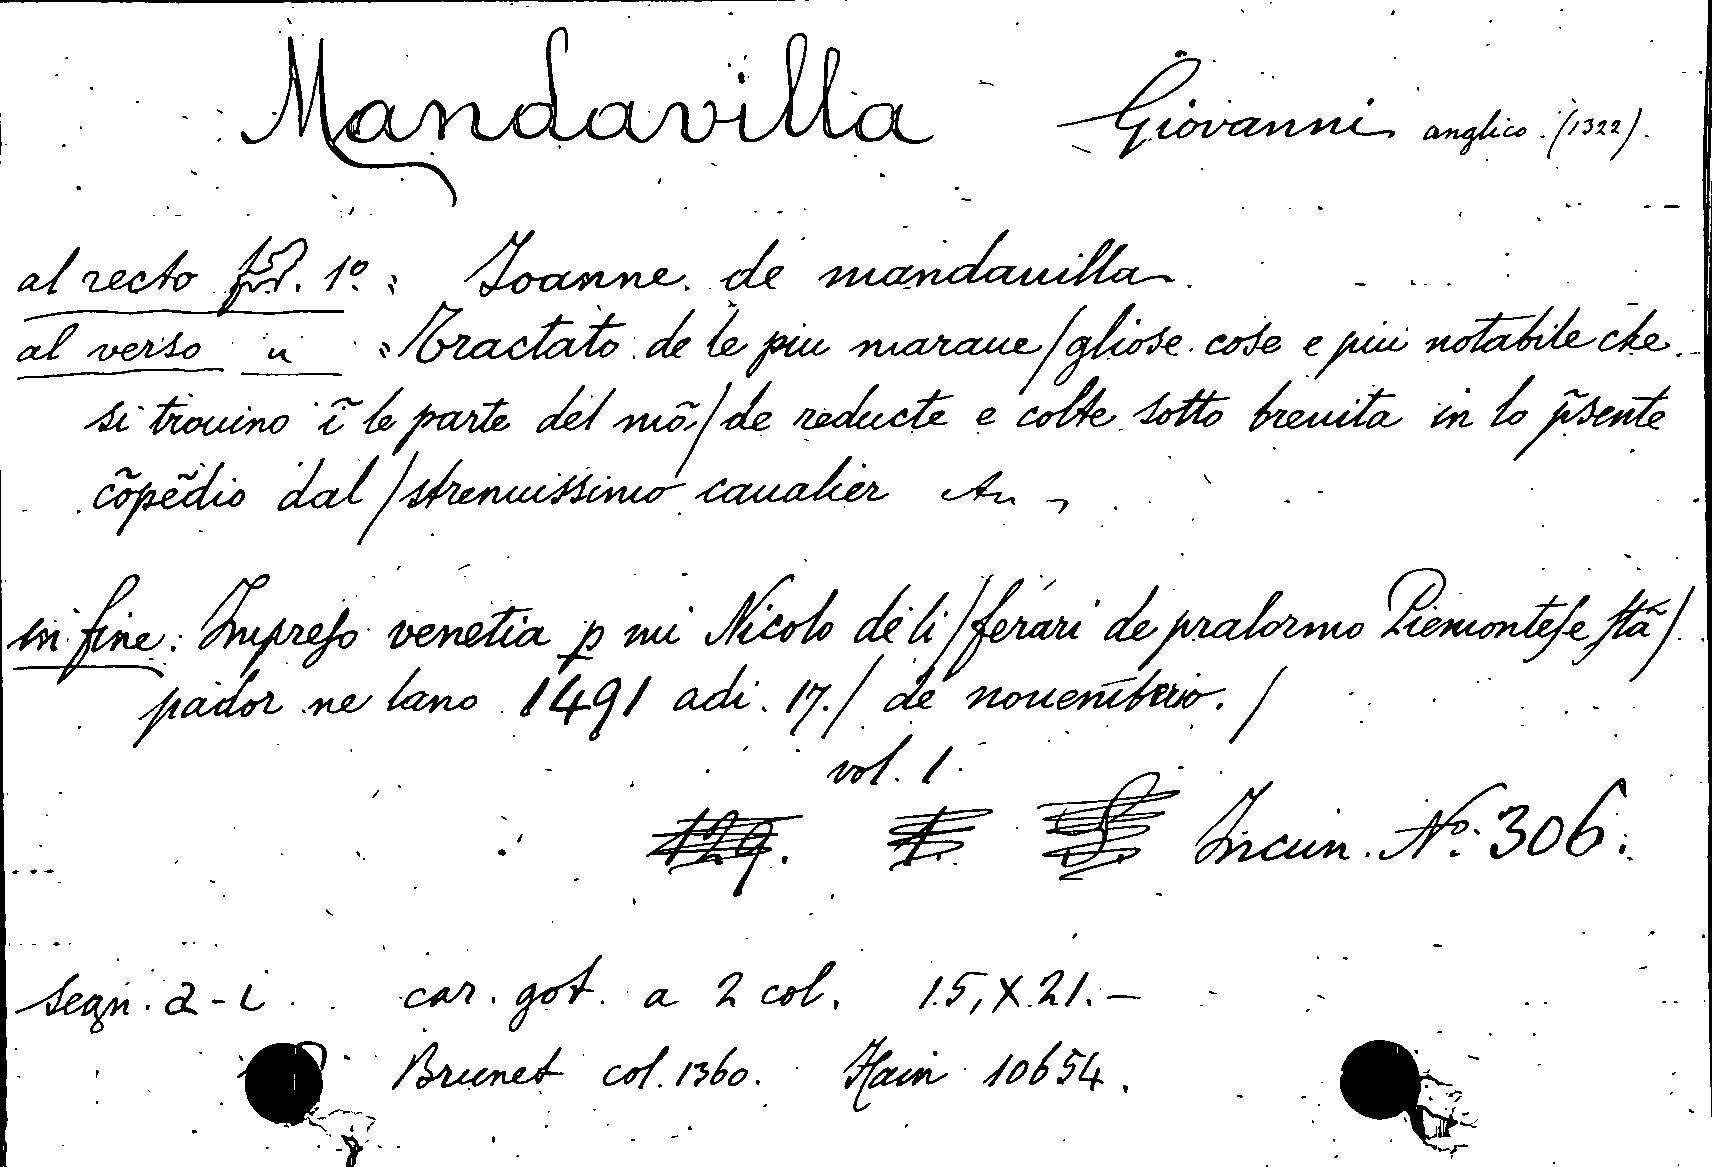 Mandavilla Giovanni anglico. (1322).
al recto fol. 1º. : Joanne. de mandauilla.
al verso " : Tractato de le piu maraue/gliose. cose e piu notabile che.
si trouino ĩ le parte del mõ/de reducte e colte sotto breuita in lo p̃sente
cõpẽdio dal/strenuissimo caualier
in fine: Impreso venetia p mi Nicolo de li/ferari de pralormo Piemontese stã/
pador ne lano 1491 adi. 17./ de nouembrio./
vol. 1.
129. 1. Incun. Nº. 306.
segn. a-i car. got. a 2 col. 15,X21.-
Brunet col. 1360. Hain 10654.